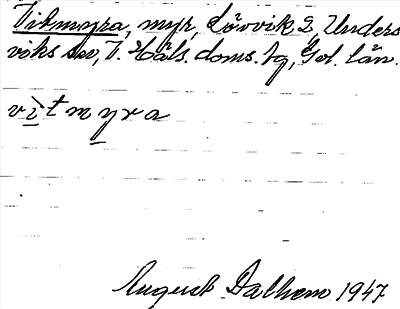 Vitmyra, myr, Lövvik 2, Unders
viks sn, V. Häls. doms. tg, Gvl. län.
vìtmyra
August Dalhem 1947